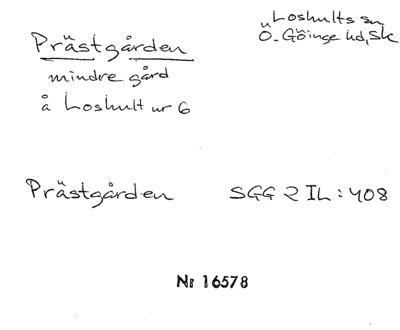 Prästgården
Loshults sn
Ö. Göinge hd, Sk
mindre gård
å Loshult nr 6
Prästgården SGG 2 IL: 408
Nr 16578